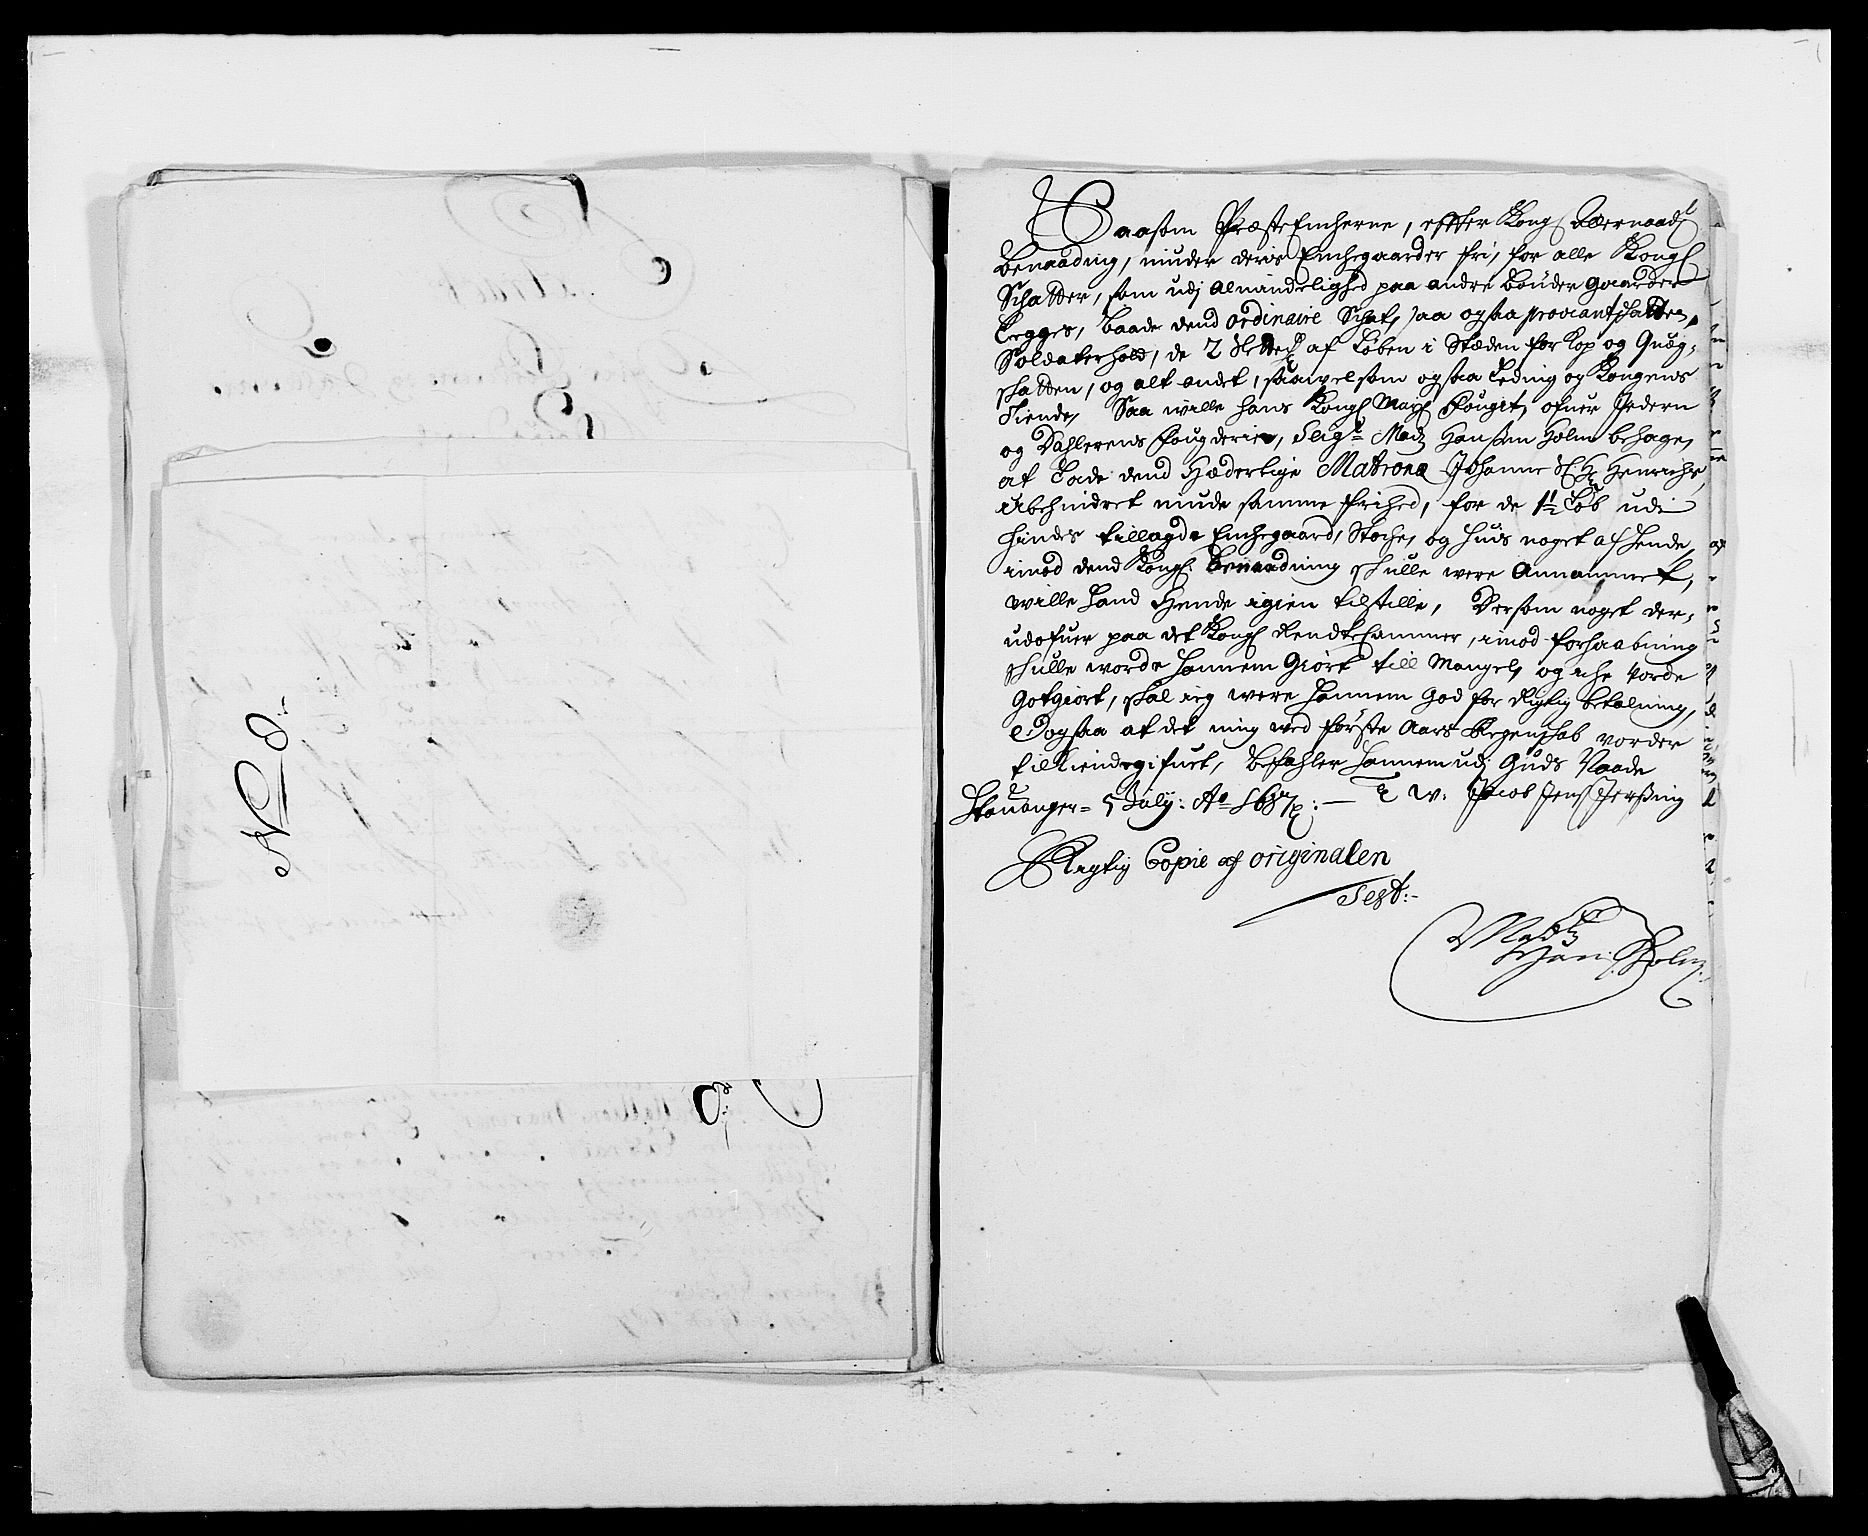 No 8:
8:
Saasom Præste Encherne, effter Kong
benaading, niuder deris Enchegaarder fri, for alle Kongl
Schatter, som udj Almindelighed paa andre bønder gaarder
Legges, baade dend ordinaire Schat, saa ogsaa proviantschatten,
Soldaterhold, de 2 af Løben i Stæden for Kop og Quæg-
schatten, og alt andet, saavelsom ogsaa Leding og Kongens
Tiende, Saa wille hans Kongl Mayts Fougit, ofuer Jedern
og Dahlernes Fougderier, Seigr Madtz Hanssen Holm behage,
at Lade dend Hæderlige Matrone Johanne Sl. Hr Henrichs,
Ubehindret niude samme frihed, for de 1½ Løb udi
hindes tillagde Enchegaard, Stoche, og huis noget af hende,
imod dend Kongl. Benaadning schulle were Annammet,
wille hand hende igien tilstille, Dersom noget der-
udofuer paa det Kongl Rendtecammer, imod forhaabning
schulle worde hannem Giort till Mangel, og iche vorde
Gotgiort, schal ieg were hannem god for Rigtig betalning,
Dogsaa at det mig wed første Aars Regenschab vorder
tilkiendegifuet, Befahler hannem udj Guds Naade
Stauanger = 5 July: Ao 1687: — E W. Jacob Jenss
Rigtig Copie af originalen
Test:-
Madtz
Hans: Holm